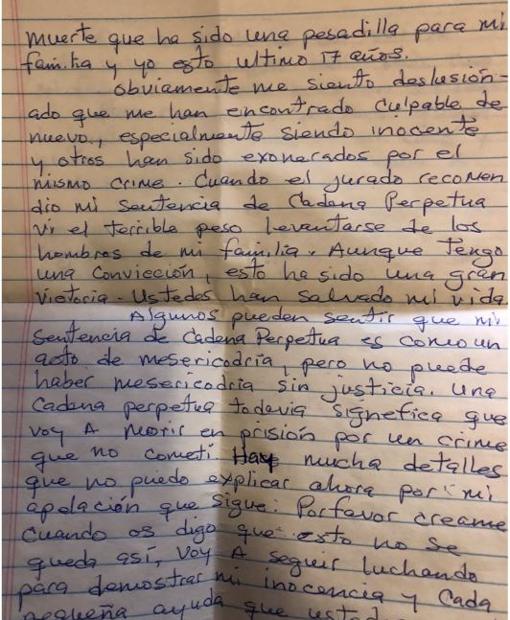 muerte que ha sido una pesadilla para mi
familia y yo esto ultimo 17 años.
obviamente me siento deslusión-
ado que me han encontrado culpable de
nuevo, especialmente siendo inocente
y otros han sido exonerados por el
mismo crime. Cuando el jurado recomen
dio mi sentencia de Cadena Perpetua
vi el terrible peso levantarse de los
hombros de mi familia. Aunque tengo
una convicción, esto ha sido una gran
victoria. Ustedes han salvado mi vida
Algunos pueden sentir que mi
sentencia de Cadena Perpetua es como un
acto de mesericordia, pero no puede
haber mesericordia sin justicia. Una
Cadena perpetua todavia signefica que
voy A Morir en prisión por un crime
que no cometi. Hay mucha detalles
que no puedo explicar ahora por mi
apelación que sigue. Porfavor creame
Cuando os digo que esto no se
queda así, voy A seguir luchando
para demostrar mi inocencia y Cada
pequeña ayuda que